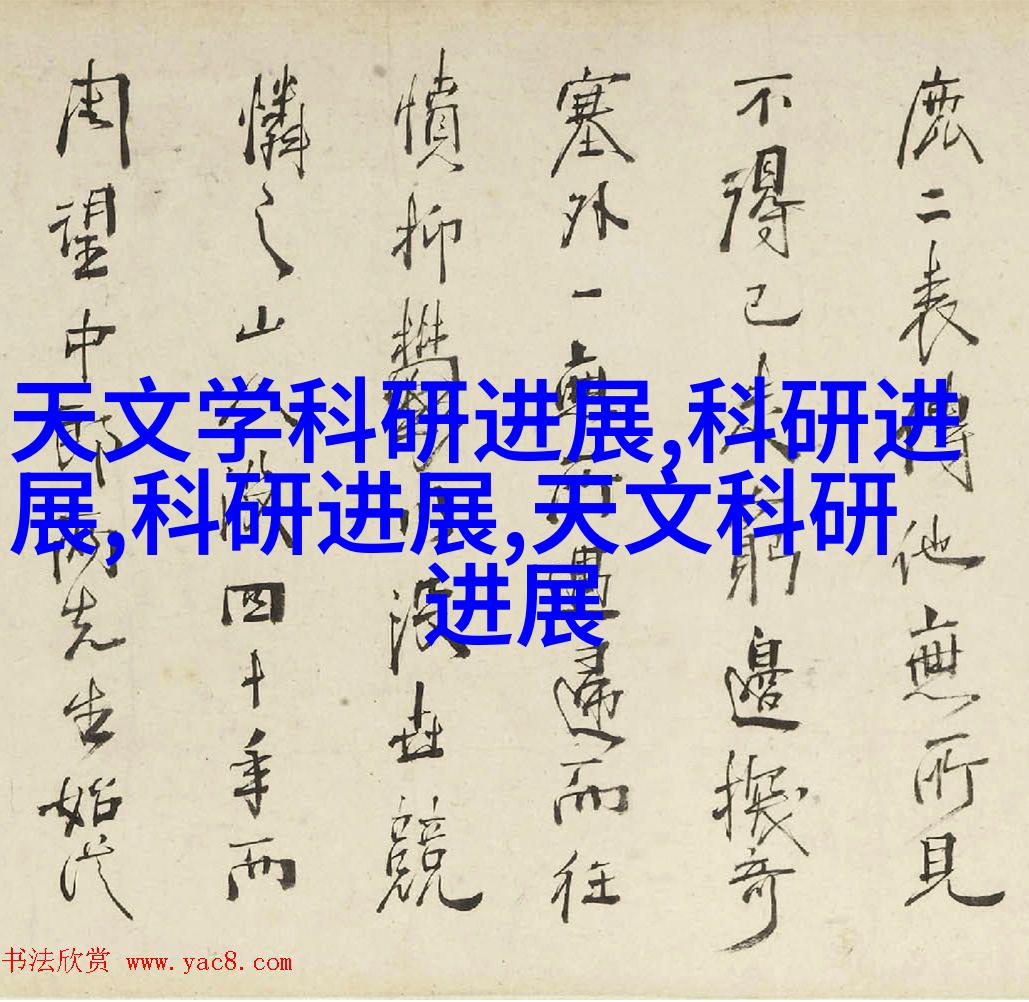 天文学科研进展,科研进
展,科研进展,天文科研
进展
二表他無所見
不得已邊探奇
塞外一無所而往
憤抑鬱没世競
憐之山人四十年而
周望中郎兩先生始從
书法欣赏 www.yac8.com